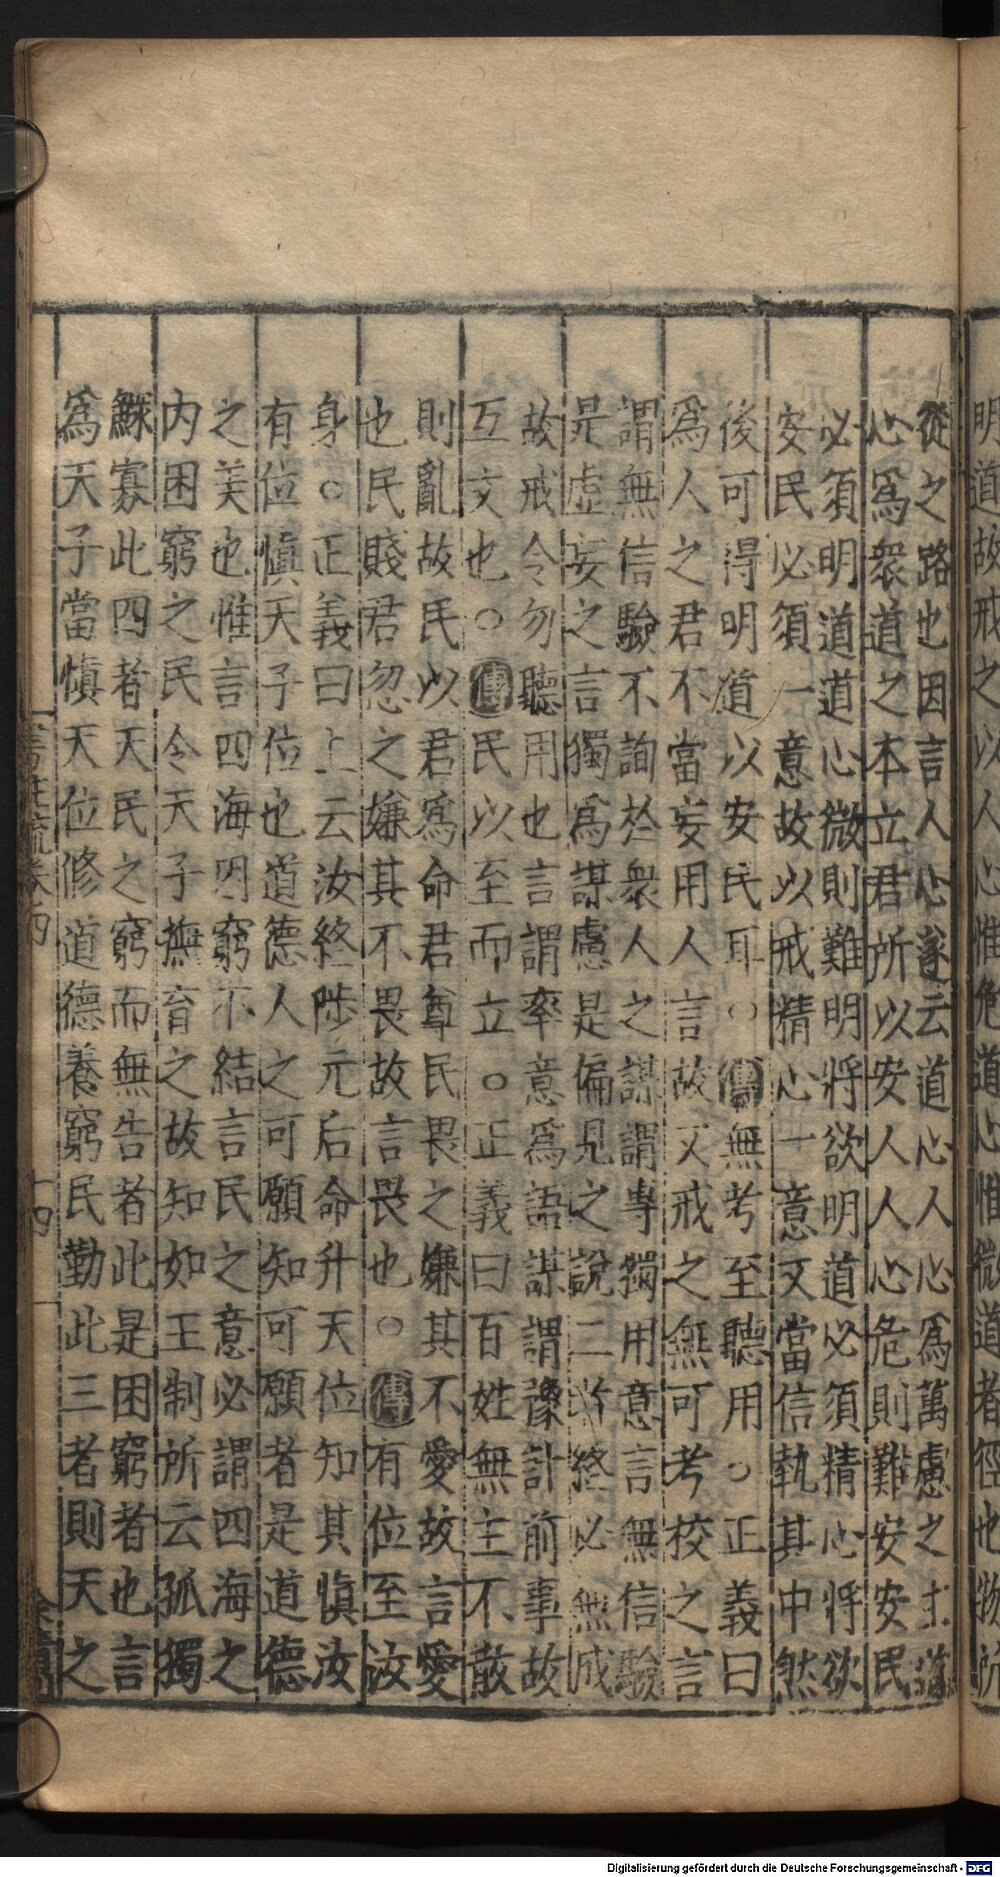 明道故戒之以人心惟危道心惟微道者徑也物所
從之路也因言人心遂云道心人心爲萬慮之主道
心爲衆道之本立君所以安人人心危則難安安民
必須明道道心微則難明將欲明道必須精心將欲
安民必須一意故以戒精心一意又當信執其中然
後可得明道以安民耳○傳無考至聽用○正義曰
爲人之君不當妄用人言故又戒之無可考校之言
謂無信驗不詢於衆人之謀謂專獨用意言無信驗
是虚妄之言獨爲謀慮是偏見之說二者終必無成
故戒令勿聽用也言謂率意爲語謀謂豫計前事故
互文也○傳民以至而立○正義曰百姓無主不散
則亂故民以君爲命君尊民畏之嫌其不愛故言愛
也民賤君忽之嫌其不畏故言畏也○傳有位至汝
身○正義曰上云汝終陟元后命升天位知其慎汝
有位慎天子位也道德人之可願知可願者是道德
之美也惟言四海困窮不結言民之意必謂四海之
内困窮之民令天子撫育之故知如王制所云孤獨
鰥寡此四者天民之窮而無告者此是困窮者也言
爲天子當慎天位修道德養窮民勤此三者則天之
十四
Digitalisierung gefördert durch die Deutsche Forschungsgemeinschaft - DFG